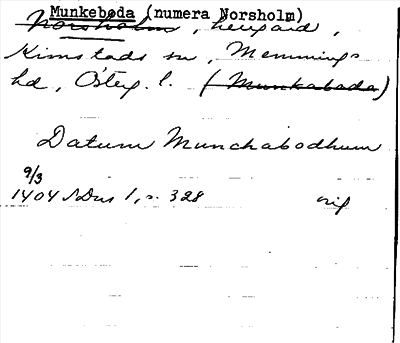 Munkeboda (numera Norsholm)
Norsholms, herrgård,
Kimstads sn, Memmings
hd, Österg. l. (Munkaboda)
Datum Munchabodhum
9/3
1404 SDns 1, s. 328 orig